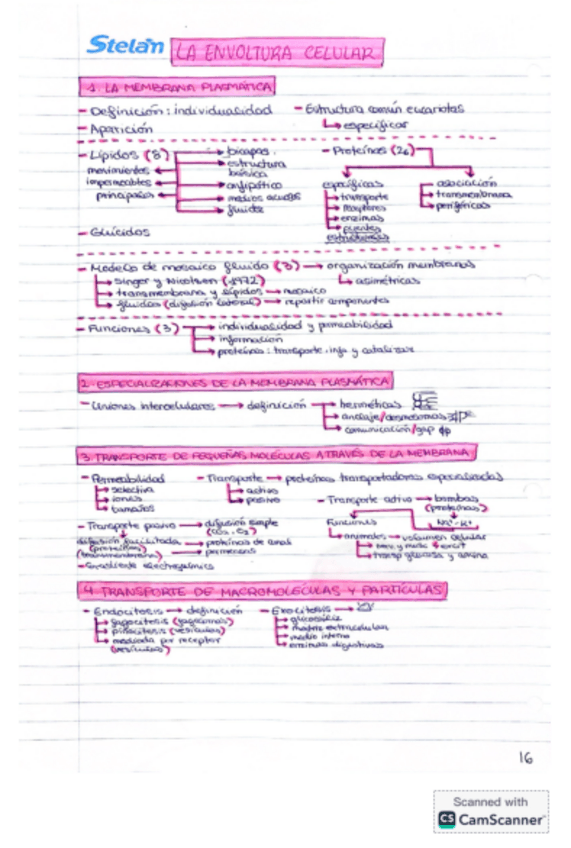 Stelan LA ENVOLTURA CELULAR
1. LA MEMBRANA PLASMÁTICA
- Definición: individualidad - Estructura común eucariotas
- Aparición especificar
- Lípidos (8) bicapas - Proteínas (26)
movimientos estructura básica
impermeables anfipático
principales medios acuosos
fluidez
específicas asociación
transporte transmembrana
receptores periféricas
enzimas
puentes
estructuras
- Glúcidos
- Modelo de mosaico fluido (3) organización membranas
Singer y Nicolson (1972) asimétricas
transmembrana y lípidos mosaico
fluidos (difusión lateral) repartir componentes
- Funciones (3) individualidad y permeabilidad
información
proteínas: transporte, info y catalizar
2. ESPECIALIZACIONES DE LA MEMBRANA PLASMÁTICA
- Uniones intercelulares definición herméticas
anclaje/desmosomas
comunicación/gap
3. TRANSPORTE DE PEQUEÑAS MOLÉCULAS A TRAVÉS DE LA MEMBRANA
- Permeabilidad - Transporte proteínas transportadoras especializadas
selectiva activo
iones pasivo - Transporte activo bombas
tamaños (proteínas)
- Transporte pasivo difusión simple Funciones Na⁺-K⁺
(CO₂, O₂)
difusión facilitada proteínas de canal animales volumen celular
(proteínas) permeasas
(transmembrana) transp glucosa y amina
- Gradiente electroquímico
4. TRANSPORTE DE MACROMOLÉCULAS Y PARTÍCULAS
- Endocitosis definición - Exocitosis
fagocitosis (fagosomas)
pinocitosis (vesículas) matriz extracelular
mediada por receptor medio interno
(vesículas) enzimas digestivas
16
Scanned with
CS CamScanner